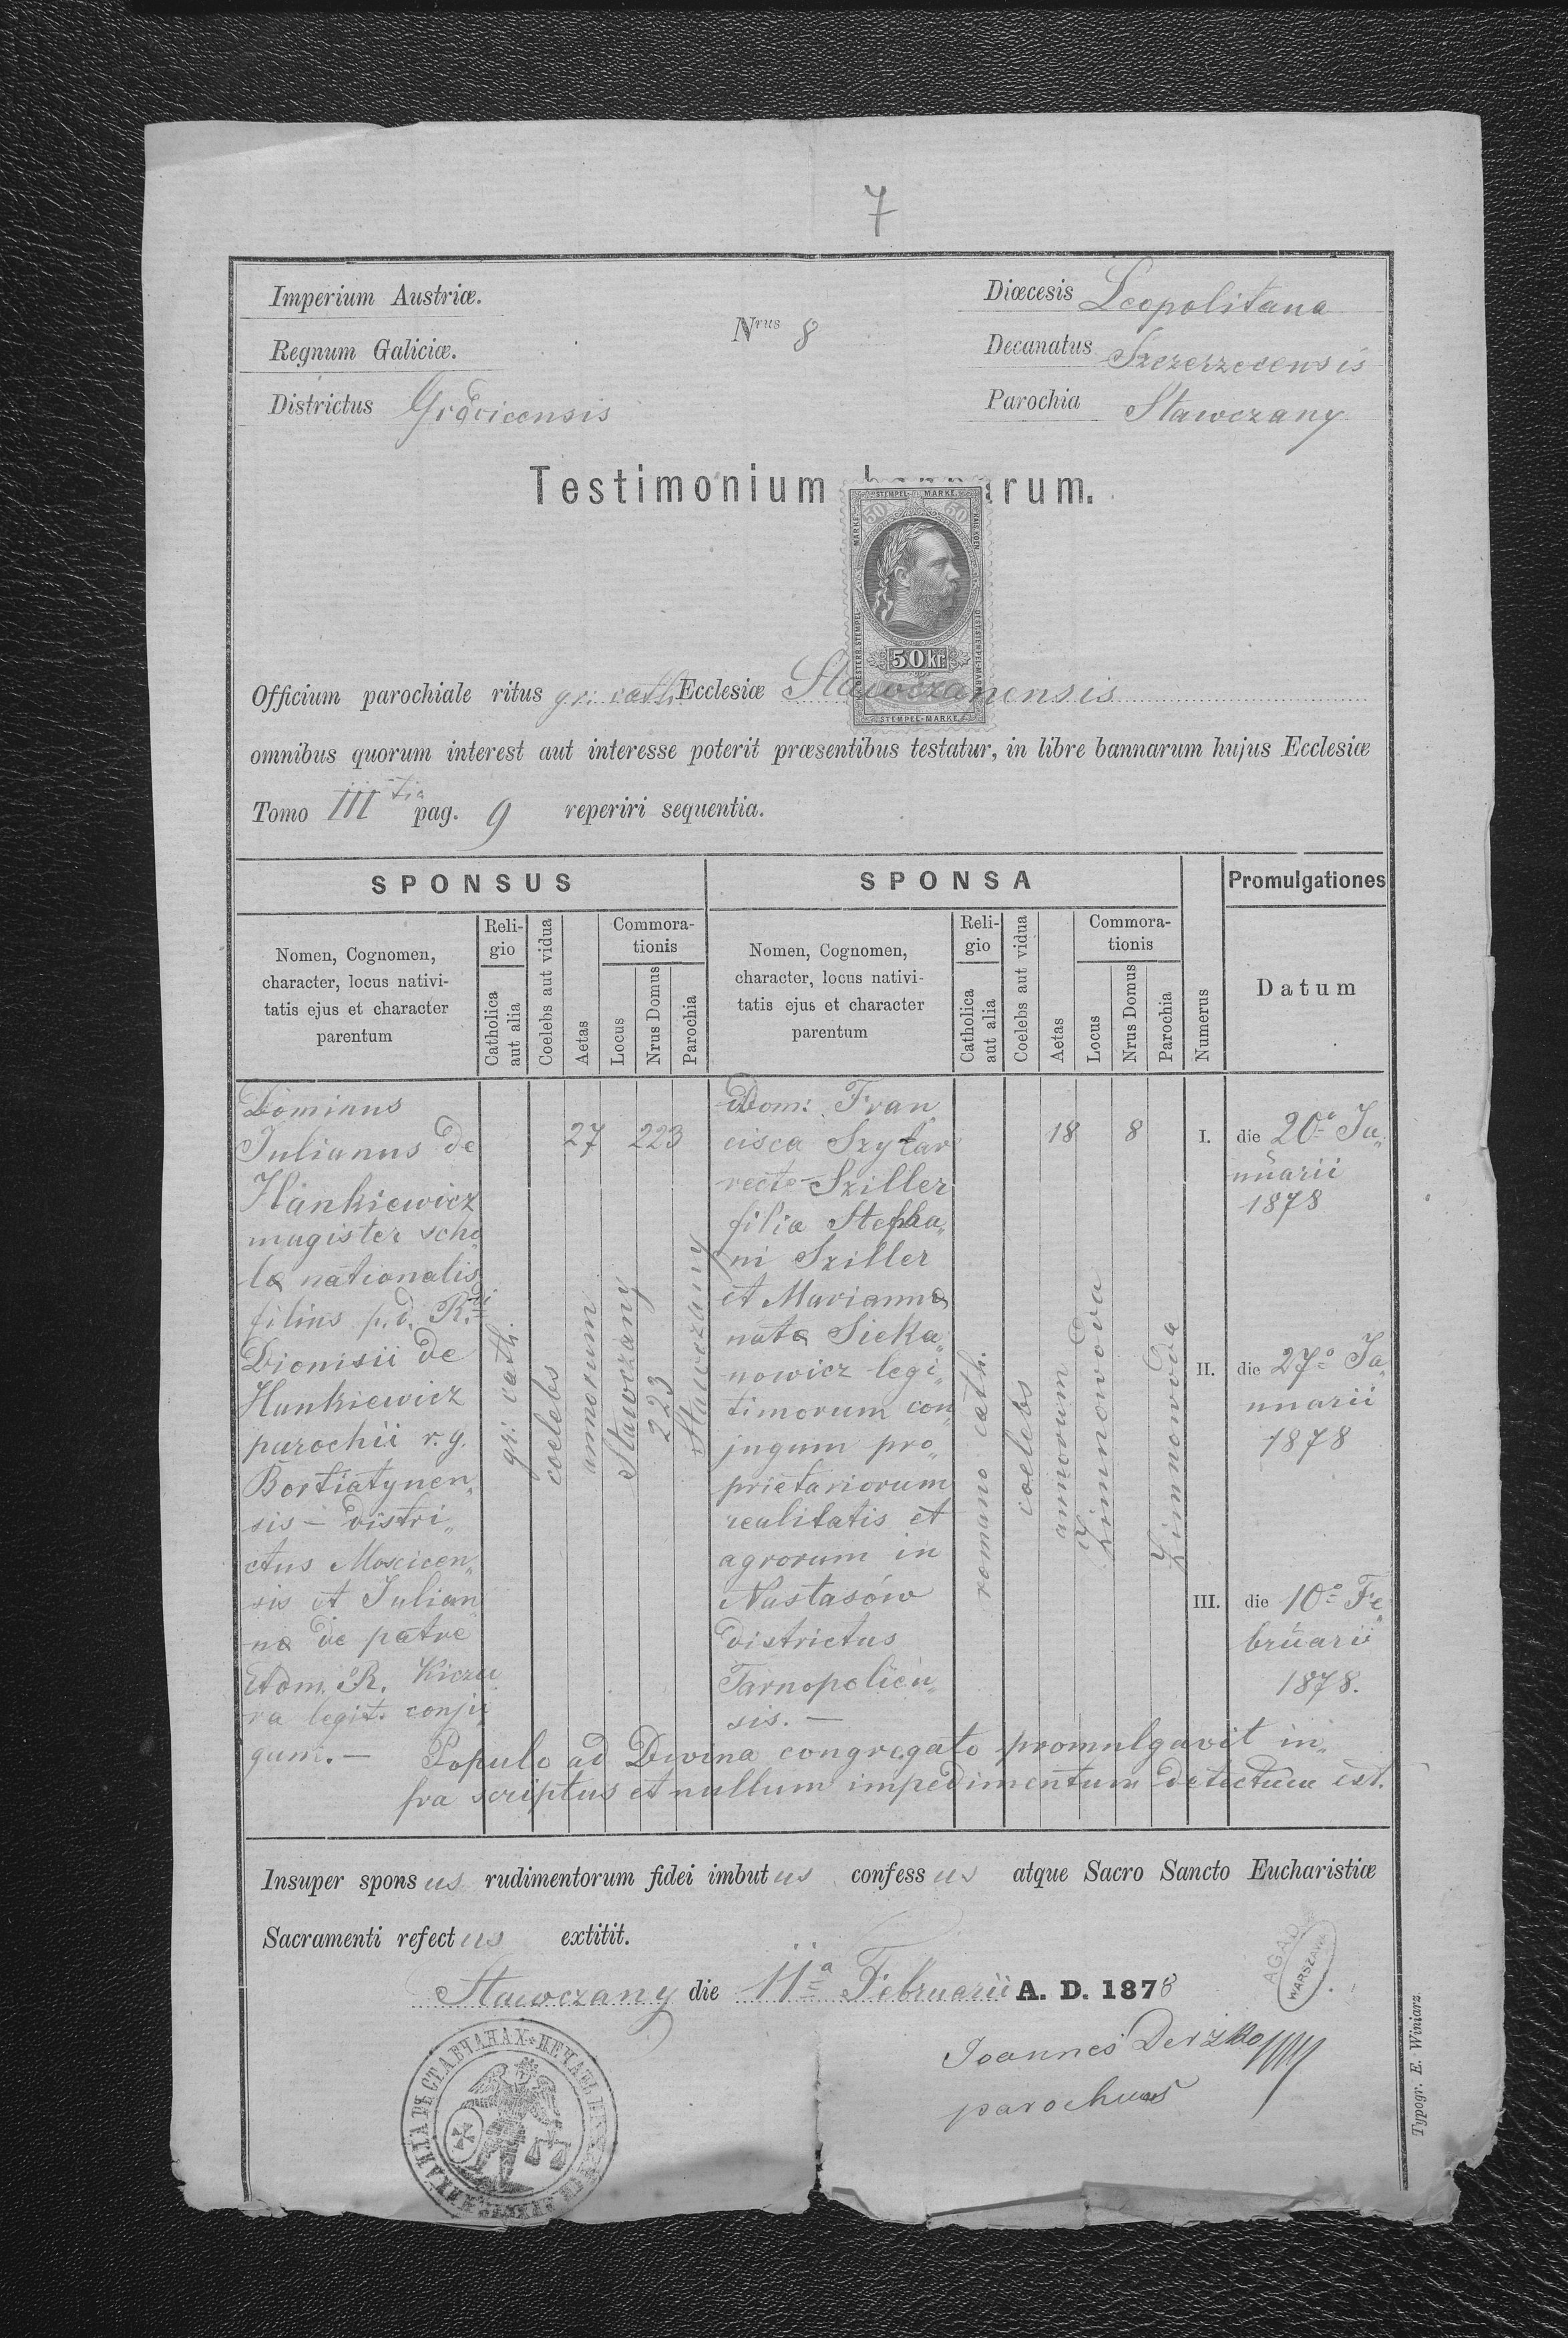 7
Imperium Austriæ.
Regnum Galiciæ.
Districtus Grodecensis
Nrus 8
Diœcesis Leopolitana
Decanatus Szczerzecensis
Parochia Stawczany
Testimonium bannarum.
STEMPEL-MARKE
50 50
50 kr
STEMPEL-MARKE
Officium parochiale ritus gr: cath. Ecclesiæ Stawczanensis
omnibus quorum interest aut interesse poterit præsentibus testatur, in libre bannarum hujus Ecclesiæ
Tomo III tia pag. 9 reperiri sequentia.
SPONSUS
SPONSA
Promulgationes
Nomen, Cognomen,
character, locus nativi-
tatis ejus et character
parentum
Reli-
gio
Catholica
aut alia
Coelebs aut vidua
Aetas
Commora-
tionis
Locus
Nrus Domus
Parochia
Nomen, Cognomen,
character, locus nativi-
tatis ejus et character
parentum
Reli-
gio
Catholica
aut alia
Coelebs aut vidua
Aetas
Commora-
tionis
Locus
Nrus Domus
Parochia
Numerus
Datum
Dominus
Julianus de
Hankiewicz
magister scho„
læ nationalis
filius p. d. R.di
Dionisii de
Hankiewicz
parochii r. g.
Bortiatynen„
sis – distri„
ctus Moscicen„
sis et Julian„
næ de patre
Adm. R. Kiczu„
ra legit. conju„
gum. –
gr. cath.
coelebs
27
annorum
Stawczany
223
223
Stawczany
Dom: Fran„
cisca Szytar
recte Sziller
filia Stepha„
ni Sziller
et Mariannæ
natæ Sieka„
nowicz legi„
timorum con„
jugum pro„
prietariorum
realitatis et
agrorum in
Nastasów
districtus
Tarnopolien„
sis. –
romano cath.
coelebs
18
annorum
Zimnowoda
8
Zimnowoda
I. die 20o Ja„
nuarii
1878
II. die 27o Ja„
nuarii
1878
III. die 10o Fe„
bruarii
1878.
Populo ad Divina congregato promulgavit in„
fra scriptus et nullum impedimentum detectum est.
Insuper sponsus rudimentorum fidei imbutus confessus atque Sacro Sancto Eucharistiæ
Sacramenti refectus extitit.
Stawczany die 11a Februarii A. D. 1878
AGAD
WARSZAWA
Joannes Derżko
parochus
Typogr. E. Winiarz.